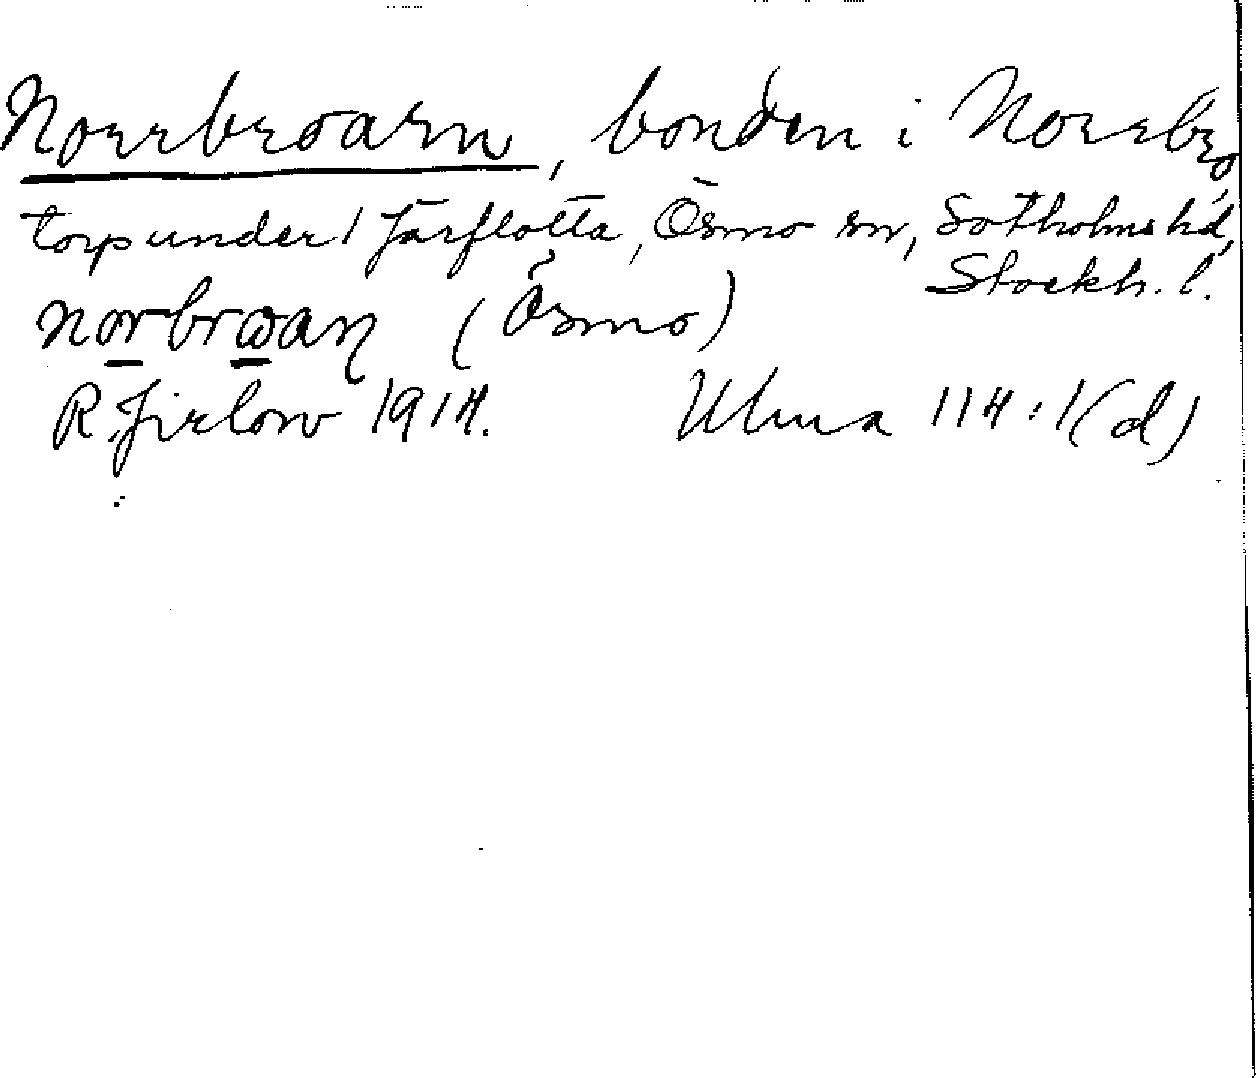 Norrbroarn, bonden i Norrbro,
torp under l Järflotta, Ösmo sn, Sotholms hd,
Stockh. l.
norbrωaɳ (Ösmo)
R. Jirlow 1914. Ulma 114:1(d)